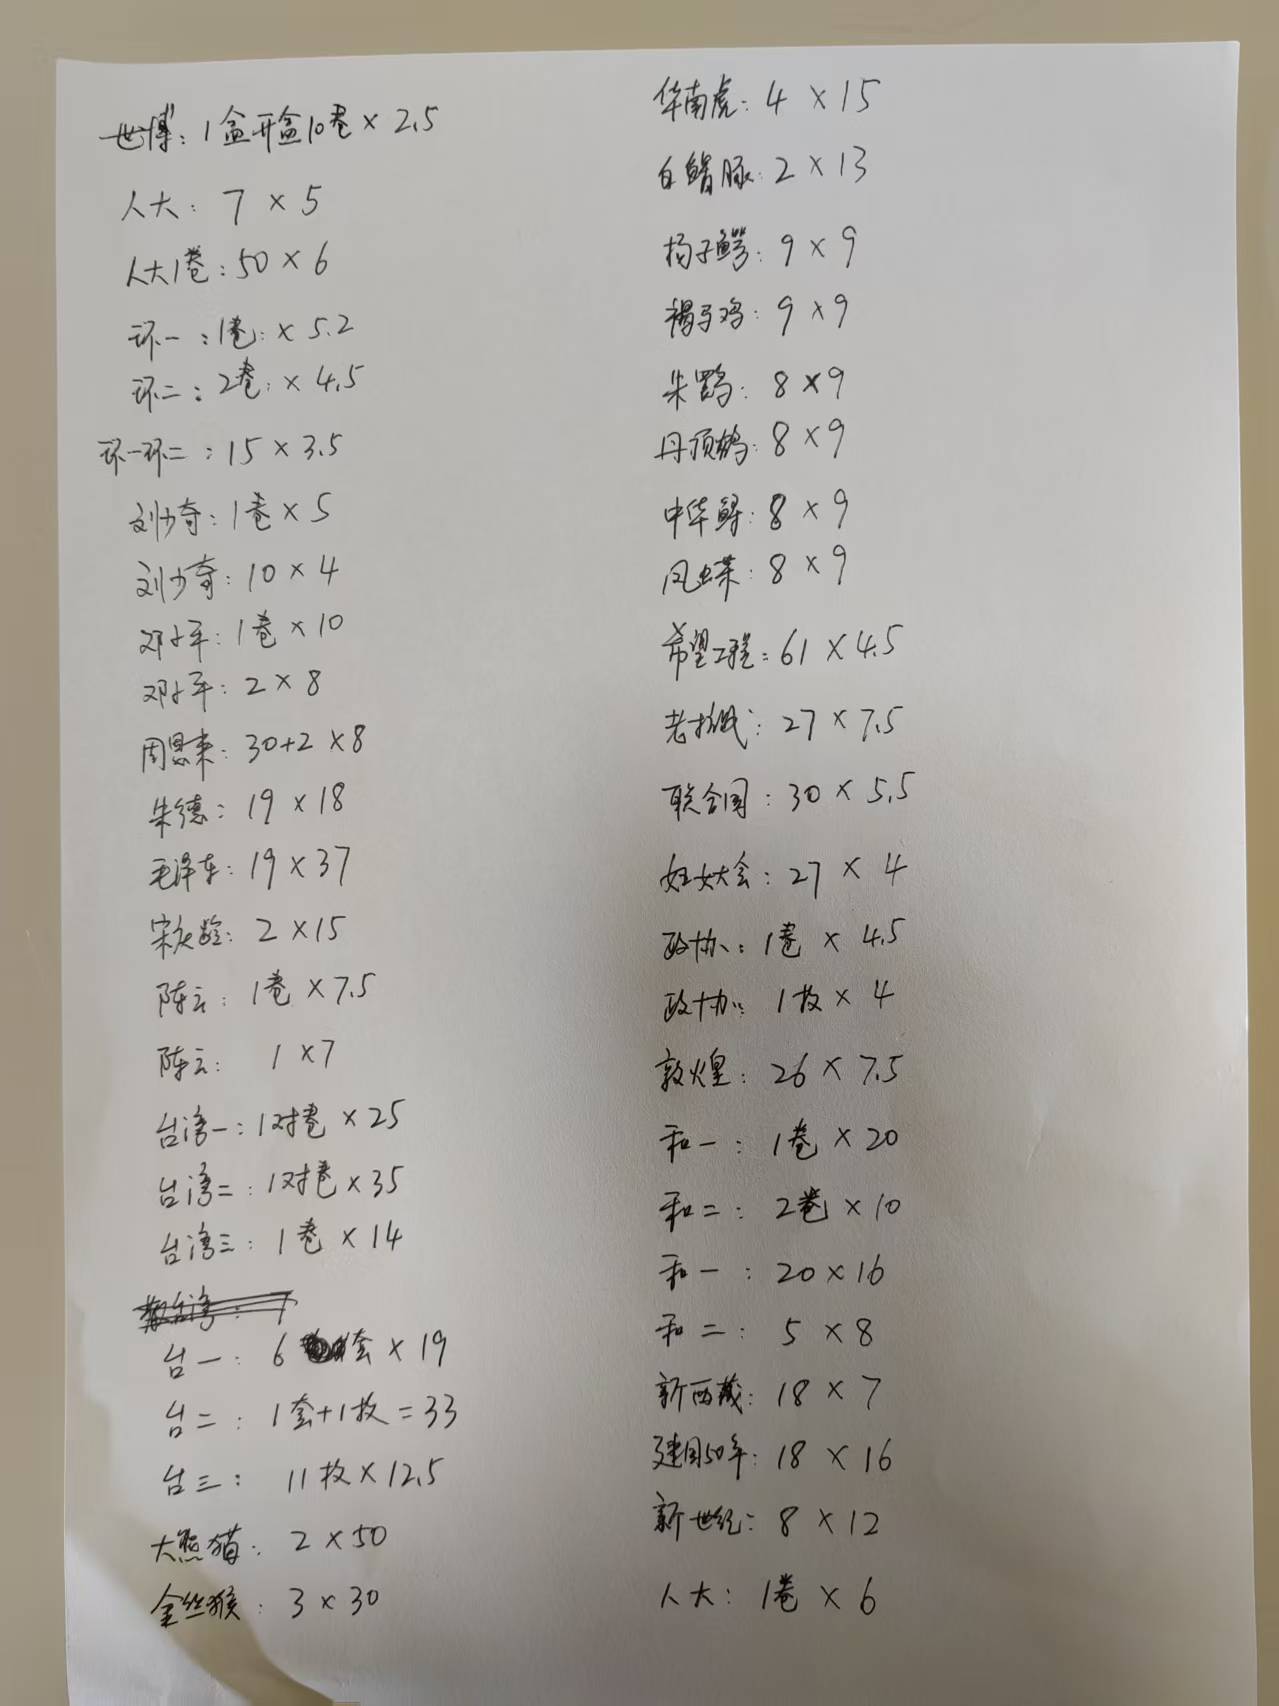 世博：1盒开盒10卷×2.5
人大：7×5
人大1卷：50×6
环一：1卷：×5.2
环二：2卷：×4.5
环一环二：15×3.5
刘少奇：1卷×5
刘少奇：10×4
邓小平：1卷×10
邓小平：2×8
周恩来：30+2×8
朱德：19×18
毛泽东：19×37
宋庆龄：2×15
陈云：1卷×7.5
陈云：1×7
台湾一：1对卷×25
台湾二：1对卷×35
台湾三：1卷×14
台一：6套×19
台二：1套+1枚=33
台三：11枚×12.5
大熊猫：2×50
金丝猴：3×30
华南虎：4×15
白鳍豚：2×13
扬子鳄：9×9
褐马鸡：9×9
朱鹮：8×9
丹顶鹤：8×9
中华鲟：8×9
凤蝶：8×9
希望工程：61×4.5
老抗战：27×7.5
联合国：30×5.5
妇女大会：27×4
政协：1卷×4.5
政协：1枚×4
敦煌：26×7.5
和一：1卷×20
和二：2卷×10
和一：20×16
和二：5×8
新西藏：18×7
建国50年：18×16
新世纪：8×12
人大：1卷×6